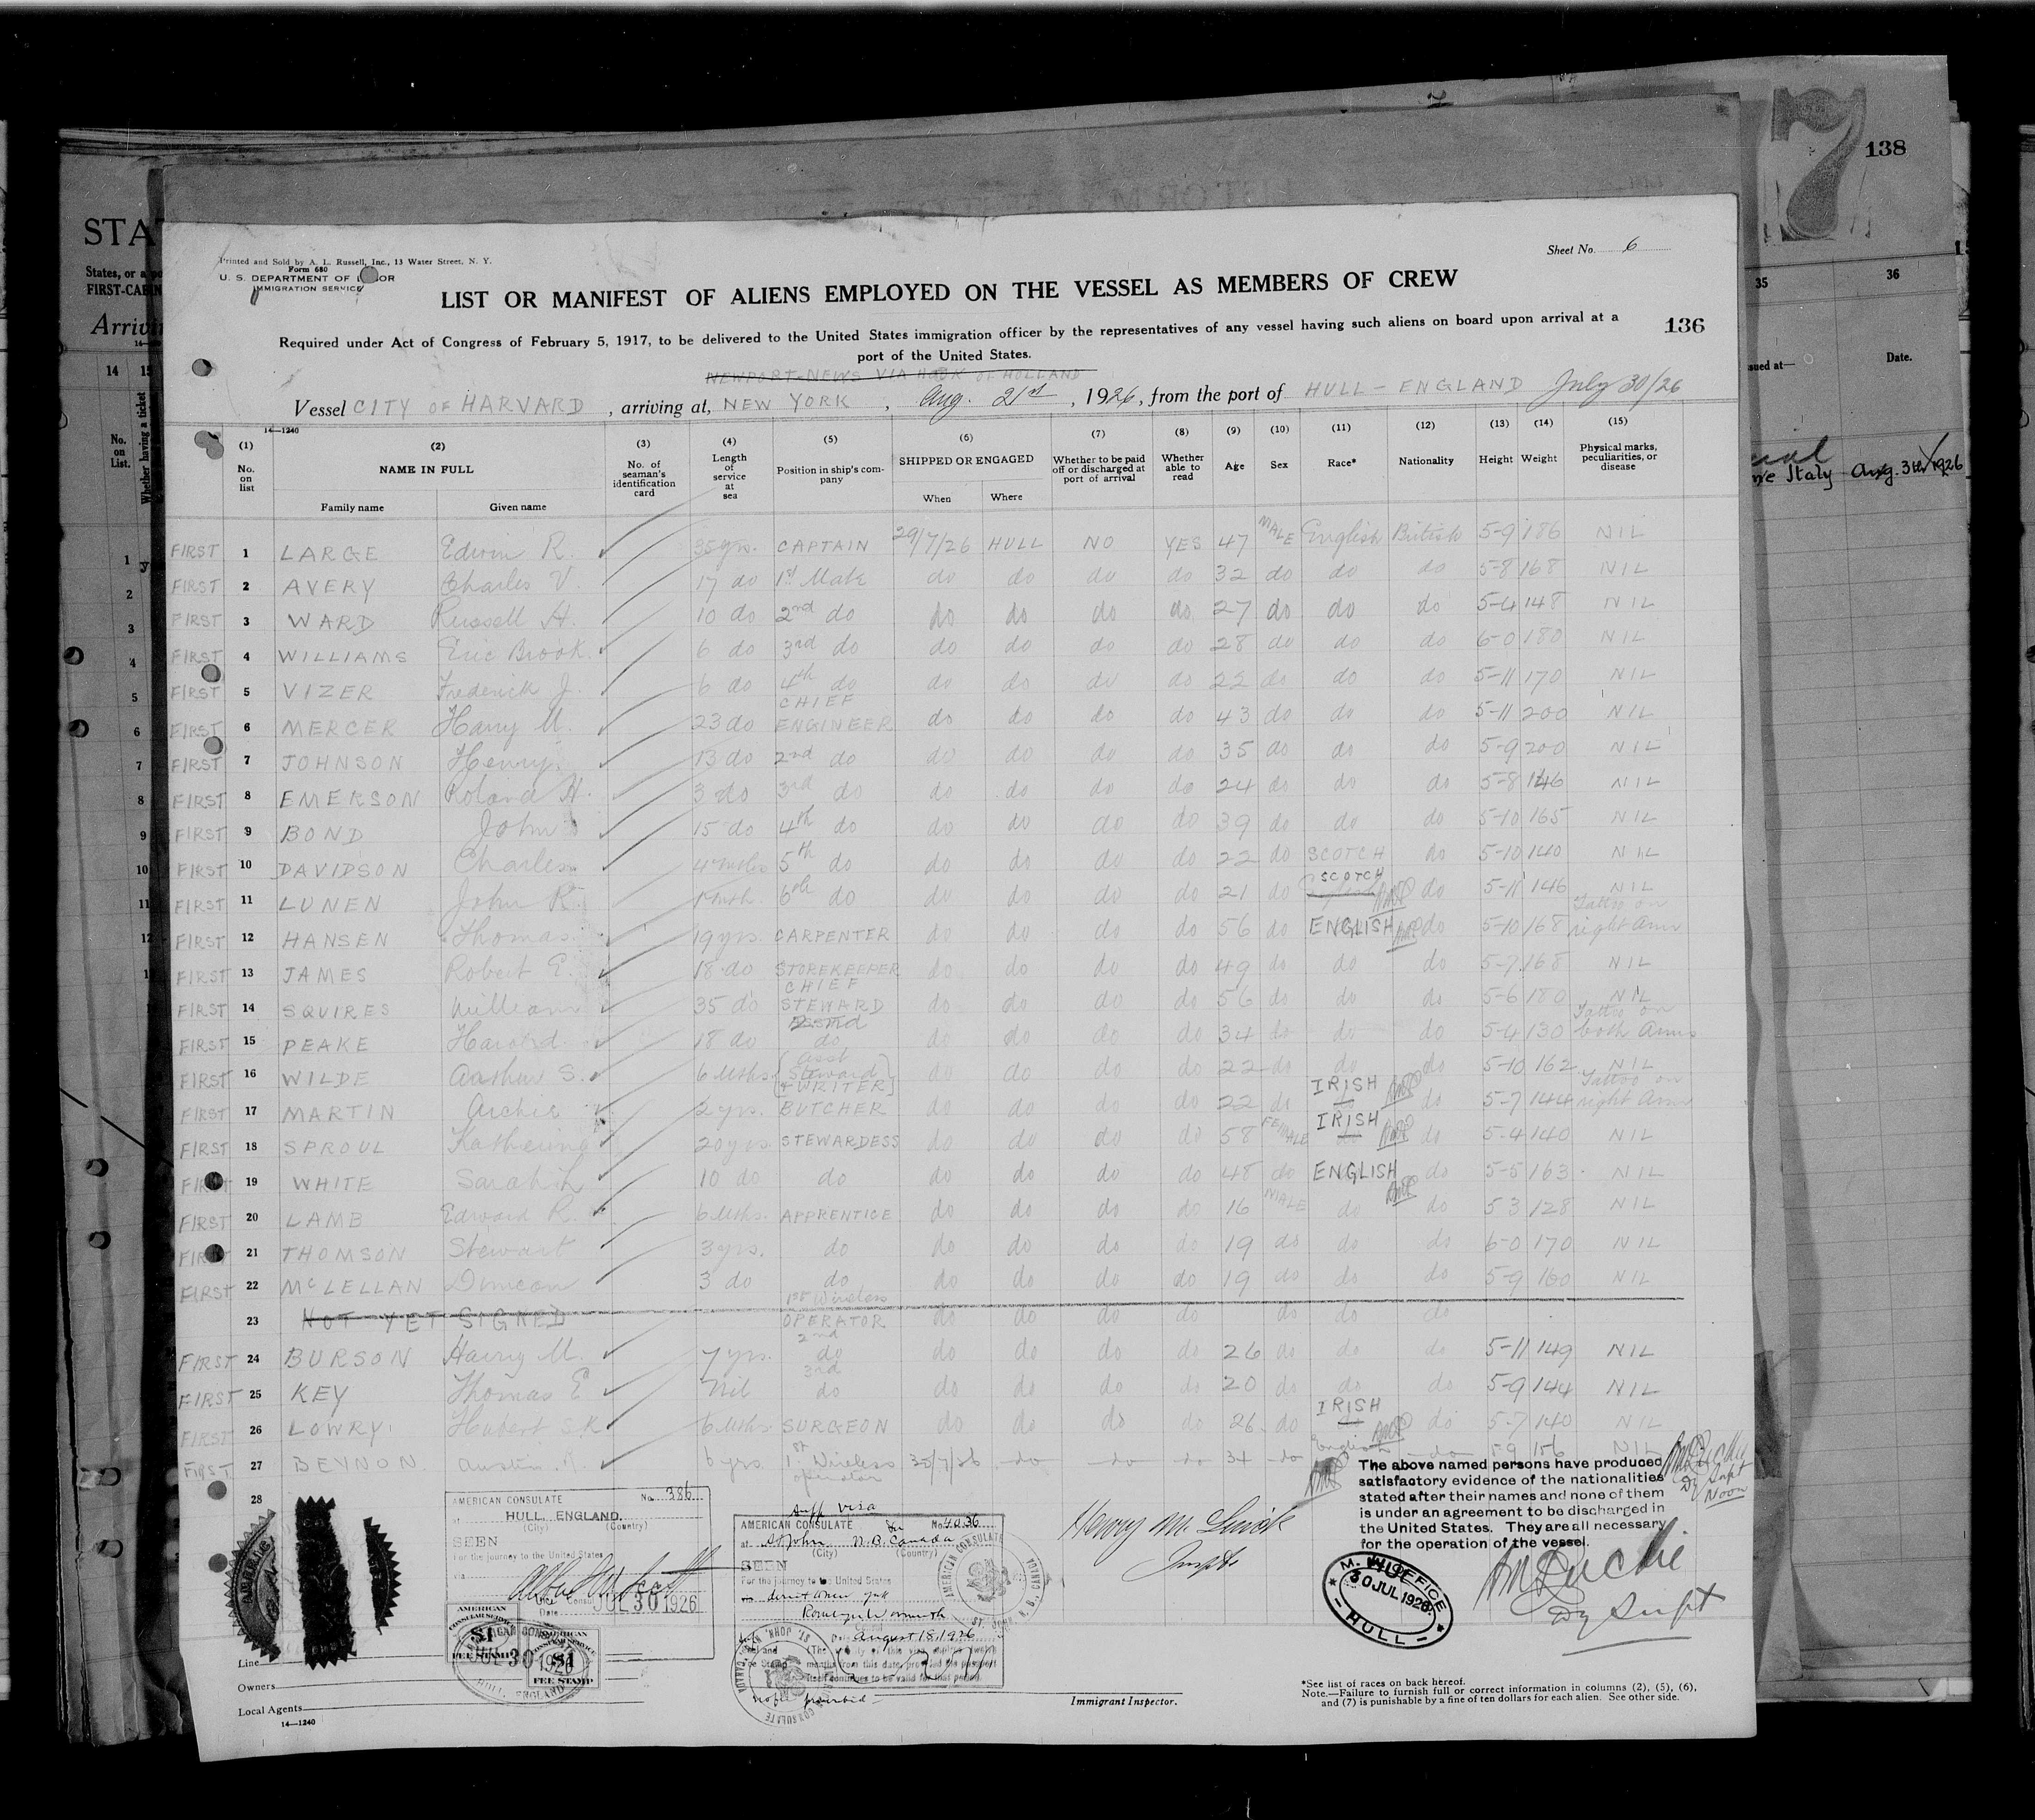 138
STA
States, or a po
FIRST-CABIN
14 15
No. on List.
Whether having a ticket
35 36
sued at— Date.
Italy Aug. 3 1926
Sheet No. 6
Printed and Sold by A. L. Russell, Inc., 13 Water Street, N. Y.
Form 680
U. S. DEPARTMENT OF LABOR
IMMIGRATION SERVICE
LIST OR MANIFEST OF ALIENS EMPLOYED ON THE VESSEL AS MEMBERS OF CREW
136
Required under Act of Congress of February 5, 1917, to be delivered to the United States immigration officer by the representatives of any vessel having such aliens on board upon arrival at a
port of the United States.
NEWPORT-NEWS VIA HOOK OF HOLLAND
Vessel CITY OF HARVARD, arriving at, NEW YORK, Aug. 21st, 1926, from the port of HULL - ENGLAND July 30/26
14—1240
(1) (2) (3) (4) (5) (6) (7) (8) (9) (10) (11) (12) (13) (14) (15)
No. on list NAME IN FULL No. of seaman's identification card Length of service at sea Position in ship's company SHIPPED OR ENGAGED Whether to be paid off or discharged at port of arrival Whether able to read Age Sex Race* Nationality Height Weight Physical marks, peculiarities, or disease
Family name Given name When Where
FIRST 1 LARGE Edwin R. 35 yrs. CAPTAIN 29/7/26 HULL NO YES 47 MALE English British 5-9 186 NIL
FIRST 2 AVERY Charles V. 17 do 1st Mate do do do do 32 do do do 5-8 168 NIL
FIRST 3 WARD Russell H. 10 do 2nd do do do do do 27 do do do 5-4 148 NIL
FIRST 4 WILLIAMS Eric Brook. 6 do 3rd do do do do do 28 do do do 6-0 180 NIL
FIRST 5 VIZER Frederick J. 6 do 4th do do do do do 22 do do do 5-11 170 NIL
FIRST 6 MERCER Harry M. 23 do CHIEF ENGINEER do do do do 43 do do do 5-11 200 NIL
FIRST 7 JOHNSON Henry 13 do 2nd do do do do do 35 do do do 5-9 200 NIL
FIRST 8 EMERSON Roland H. 3 do 3rd do do do do do 24 do do do 5-8 146 NIL
FIRST 9 BOND John 15 do 4th do do do do do 39 do do do 5-10 165 NIL
FIRST 10 DAVIDSON Charles 4 mths 5th do do do do do 22 do SCOTCH do 5-10 140 NIL
FIRST 11 LUNEN John R. 1 mth. 6th do do do do do 21 do SCOTCH do 5-11 146 NIL
FIRST 12 HANSEN Thomas 19 yrs. CARPENTER do do do do 56 do ENGLISH do 5-10 168 Tattoo on right arm
FIRST 13 JAMES Robert E. 18 do STOREKEEPER do do do do 49 do do do 5-7 168 NIL
FIRST 14 SQUIRES William 35 do CHIEF STEWARD do do do do 56 do do do 5-6 180 NIL
FIRST 15 PEAKE Harold 18 do 2nd do do do do do 34 do do do 5-4 130 Tattoo on both arms
FIRST 16 WILDE Arthur S. 6 mths. Asst Steward & WRITER do do do do 22 do do do 5-10 162 NIL
FIRST 17 MARTIN Archie 2 yrs. BUTCHER do do do do 22 do IRISH do 5-7 144 Tattoo on right arm
FIRST 18 SPROUL Katherine 20 yrs STEWARDESS do do do do 58 FEMALE IRISH do 5-4 140 NIL
FIRST 19 WHITE Sarah 10 do do do do do do 48 do ENGLISH do 5-5 163 NIL
FIRST 20 LAMB Edward R. 6 mths. APPRENTICE do do do do 16 MALE do do 5 3 128 NIL
FIRST 21 THOMSON Stewart 3 yrs. do do do do do 19 do do do 6-0 170 NIL
FIRST 22 McLELLAN Duncan 3 do do do do do do 19 do do do 5-9 160 NIL
23 NOT YET SIGNED 1st Wireless OPERATOR do do do do do do do
FIRST 24 BURSON Harry M. 7 yrs. 2nd do do do do do 26 do do do 5-11 149 NIL
FIRST 25 KEY Thomas E. Nil 3rd do do do do do 20 do do do 5-9 144 NIL
FIRST 26 LOWRY Hubert S.K. 6 mths SURGEON do do do do 26 do IRISH do 5-7 140 NIL
FIRST 27 BEYNON Austin R. 6 yrs 1st Wireless operator 30/7/26 do do do 34 do English do 5 9 156 NIL
28
The above named persons have produced
satisfactory evidence of the nationalities
stated after their names and none of them
is under an agreement to be discharged in
the United States. They are all necessary
for the operation of the vessel.
Dy Supt
AMERICAN CONSULATE No. 386
at HULL, ENGLAND.
(City) (Country)
SEEN
For the journey to the United States
Vice Consul
Date JUL 30 1926
AMERICAN CONSULAR SERVICE $1 FEE STAMP
JUL 30 1926
HULL, ENGLAND
visa
AMERICAN CONSULATE No. 4036
at St John N.B. Canada
(City) (Country)
SEEN
For the journey to the United States
August 18, 1926
AMERICAN CONSULATE ST. JOHN, N.B., CANADA
Henry M.
Inspt
M. M. OFFICE
30 JUL 1926
HULL
Dy Supt
Line
Owners
Local Agents
14—1240
Immigrant Inspector.
*See list of races on back hereof.
Note.—Failure to furnish full or correct information in columns (2), (5), (6),
and (7) is punishable by a fine of ten dollars for each alien. See other side.